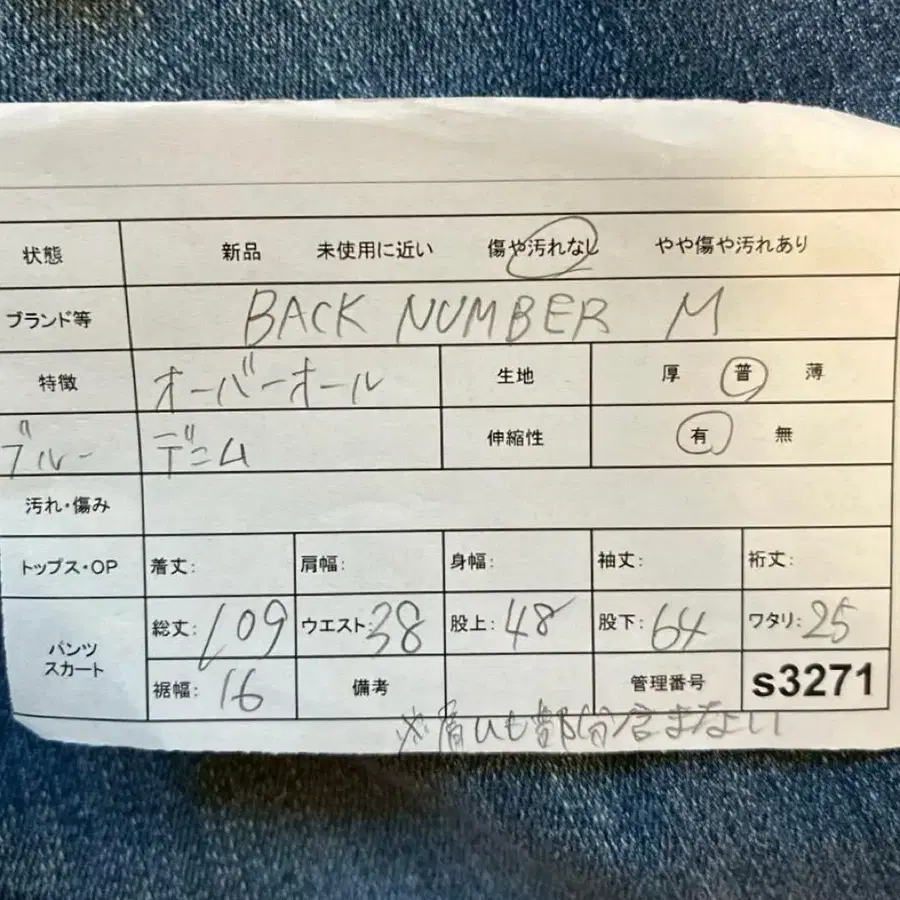 状態 新品 未使用に近い 傷や汚れなし やや傷や汚れあり
ブランド等 BACK NUMBER M
特徴 オーバーオール 生地 厚 普 薄
ブルー デニム 伸縮性 有 無
汚れ・傷み
トップス・OP 着丈: 肩幅: 身幅: 袖丈: 裄丈:
パンツ
スカート
総丈: 109 ウエスト: 38 股上: 48 股下: 64 ワタリ: 25
裾幅: 16 備考 管理番号 s3271
※肩ひも部分含まない